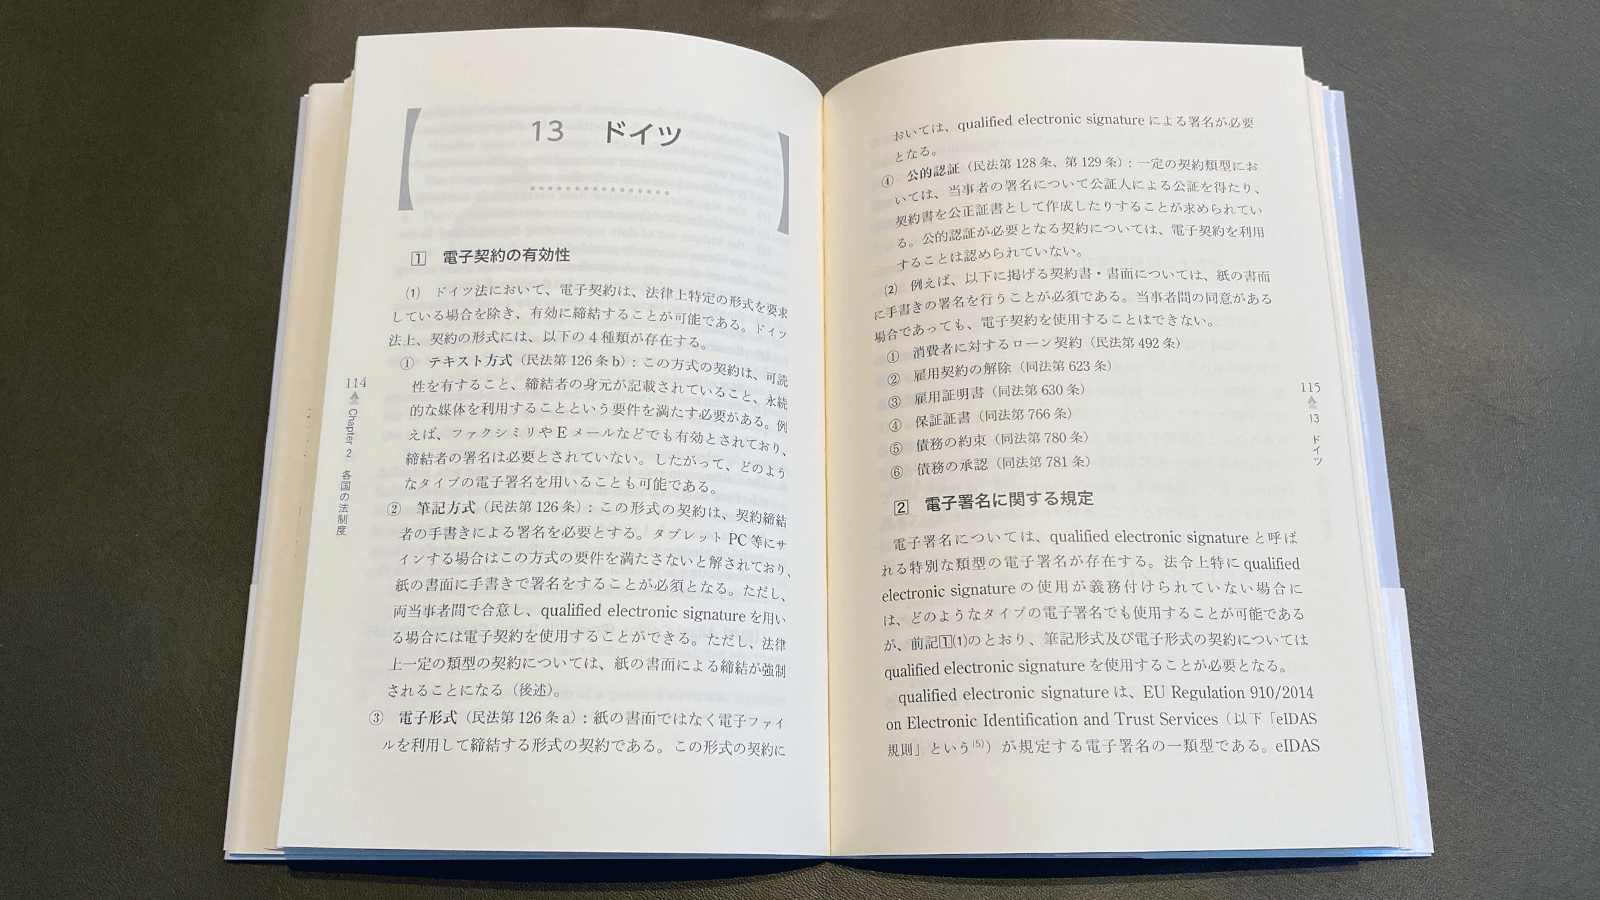 13 ドイツ
1 電子契約の有効性
⑴ ドイツ法において、電子契約は、法律上特定の形式を要求
している場合を除き、有効に締結することが可能である。ドイツ
法上、契約の形式には、以下の4種類が存在する。
① テキスト方式（民法第126条b）：この方式の契約は、可読
性を有すること、締結者の身元が記載されていること、永続
的な媒体を利用することという要件を満たす必要がある。例
えば、ファクシミリやEメールなどでも有効とされており、
締結者の署名は必要とされていない。したがって、どのよう
なタイプの電子署名を用いることも可能である。
② 筆記方式（民法第126条）：この形式の契約は、契約締結
者の手書きによる署名を必要とする。タブレットPC等にサ
インする場合はこの方式の要件を満たさないと解されており、
紙の書面に手書きで署名をすることが必須となる。ただし、
両当事者間で合意し、qualified electronic signatureを用い
る場合には電子契約を使用することができる。ただし、法律
上一定の類型の契約については、紙の書面による締結が強制
されることになる（後述）。
③ 電子形式（民法第126条a）：紙の書面ではなく電子ファイ
ルを利用して締結する形式の契約である。この形式の契約に
114
Chapter 2 各国の法制度
おいては、qualified electronic signatureによる署名が必要
となる。
④ 公的認証（民法第128条、第129条）：一定の契約類型にお
いては、当事者の署名について公証人による公証を得たり、
契約書を公正証書として作成したりすることが求められてい
る。公的認証が必要となる契約については、電子契約を利用
することは認められていない。
⑵ 例えば、以下に掲げる契約書・書面については、紙の書面
に手書きの署名を行うことが必須である。当事者間の同意がある
場合であっても、電子契約を使用することはできない。
① 消費者に対するローン契約（民法第492条）
② 雇用契約の解除（同法第623条）
③ 雇用証明書（同法第630条）
④ 保証証書（同法第766条）
⑤ 債務の約束（同法第780条）
⑥ 債務の承認（同法第781条）
2 電子署名に関する規定
電子署名については、qualified electronic signatureと呼ば
れる特別な類型の電子署名が存在する。法令上特にqualified
electronic signatureの使用が義務付けられていない場合に
は、どのようなタイプの電子署名でも使用することが可能である
が、前記1⑴のとおり、筆記形式及び電子形式の契約については
qualified electronic signatureを使用することが必要となる。
qualified electronic signatureは、EU Regulation 910/2014
on Electronic Identification and Trust Services（以下「eIDAS
規則」という(5)）が規定する電子署名の一類型である。eIDAS
115
13 ドイツ